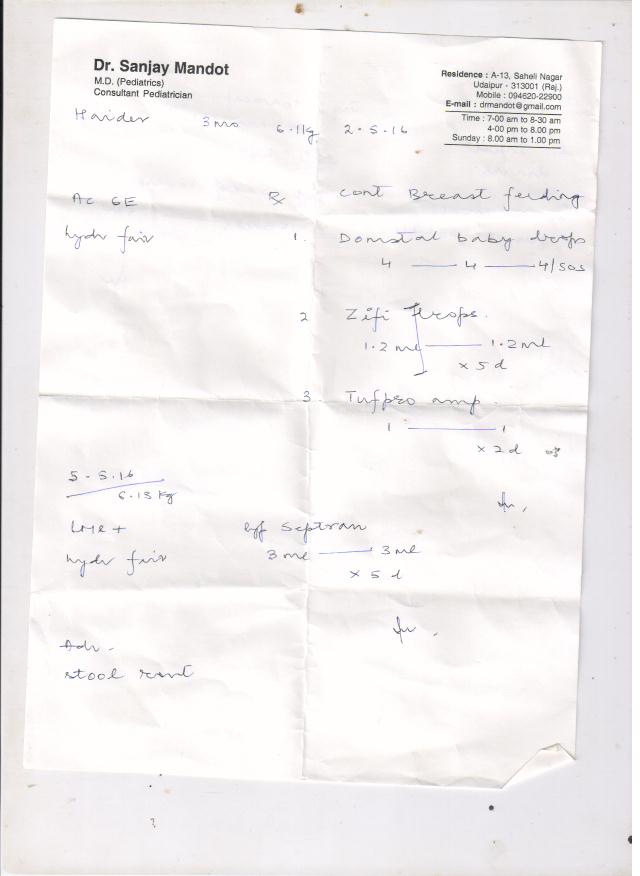 Dr. Sanjay Mandot
M.D. (Pediatrics)
Consultant Pediatrician
Residence : A-13, Saheli Nagar
Udaipur - 313001 (Raj.)
Mobile : 094620-22900
E-mail : drmandot@gmail.com
Time : 7-00 am to 8-30 am
4-00 pm to 8.00 pm
Sunday : 8.00 am to 1.00 pm
Haider 3 mo 6.11kg 2-5-16
Ac GE
hydr fair
℞ cont Breast feeding
1. Domstal baby drops
4 — 4 — 4/SOS
2 Zifi drops.
1.2 ml — 1.2 ml
x 5 d
3. Tufpro amp.
1 — 1
x 2 d
5-5.16
6.15 kg
LMR +
hydr fair
Syf Septran
3 ml — 3 ml
x 5 d
Adv.
stool